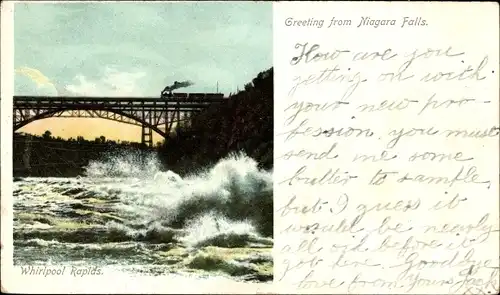 Greeting from Niagara Falls.
How are you
getting on with
your new pro-
fession, you must
send me some
butter to sample,
but I guess it
would be nearly
all oil before it
got here. Goodbye
love from Yours Jack
Whirlpool Rapids.